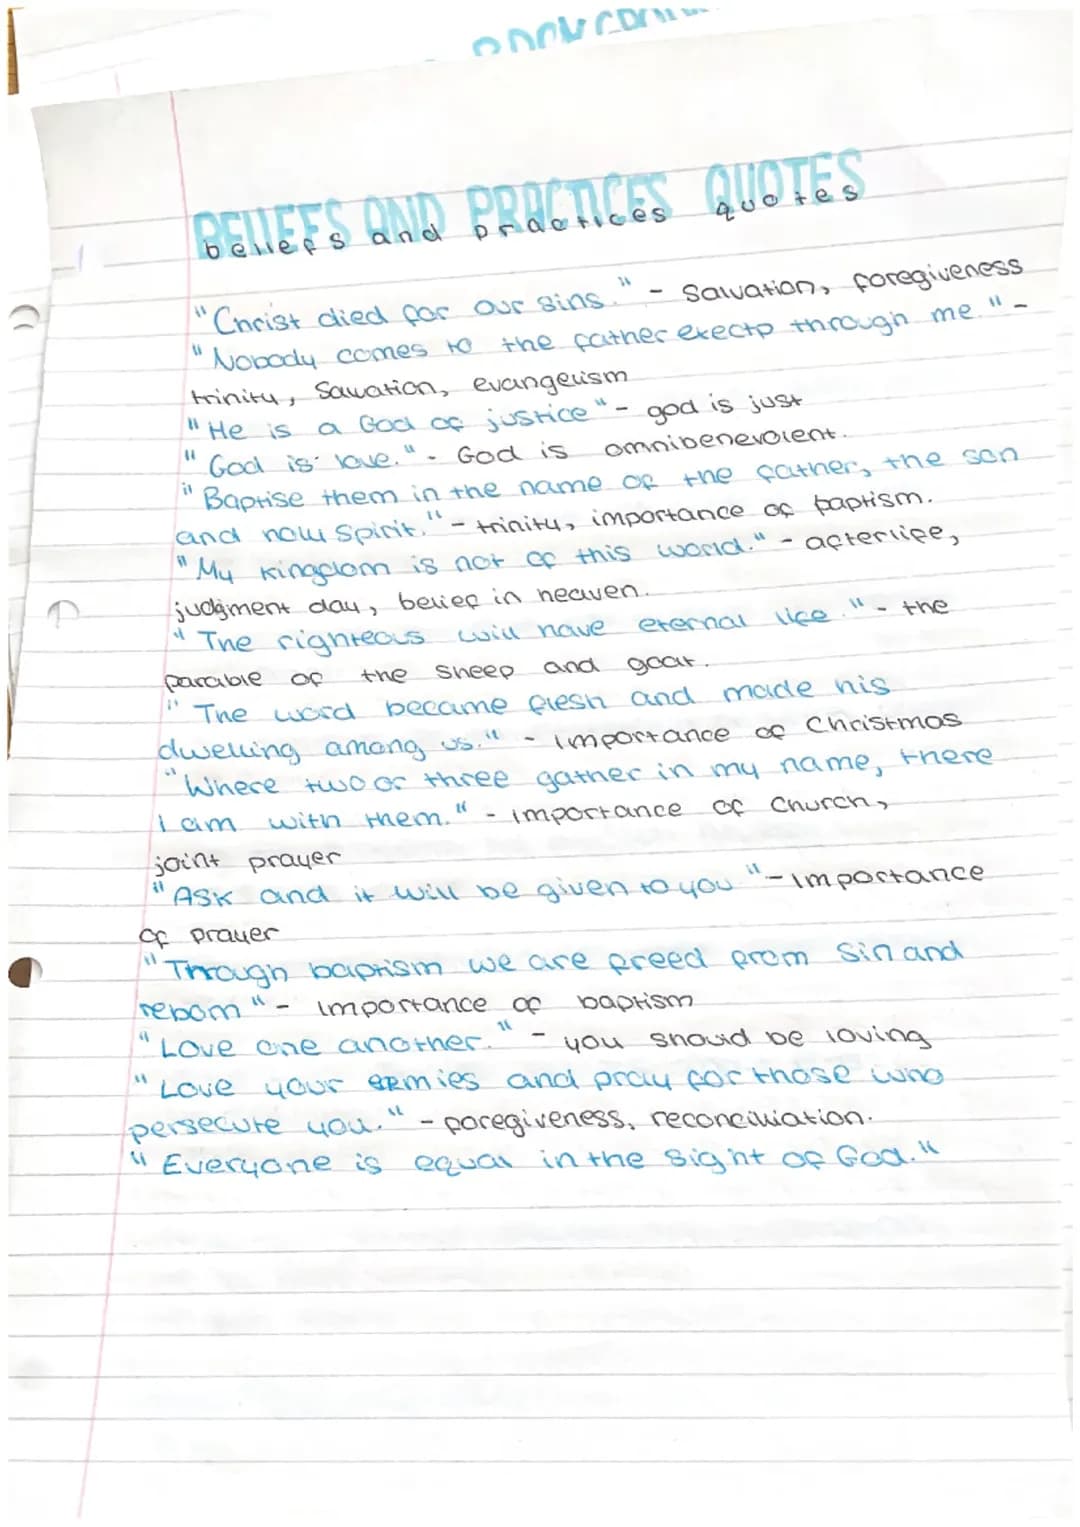 BELIEFS AND PRACTICES QUOTES
beliefs and practices quotes
"Christ died for our sins." - Salvation, foregiveness
"Nobody comes to the father exectp through me." -
trinity, Salvation, evangelism
"He is a God of justice" - god is just
"God is love." - God is omnibenevolent.
"Baptise them in the name of the father, the son
and holy spirit." - trinity, importance of baptism.
"My kingdom is not of this world." - afterlife,
judgment day, belief in heaven.
"The righteous will have eternal life." - the
parable of the sheep and goat.
"The word became flesh and made his
dwelling among us." - importance of Christmas
"Where two or three gather in my name, there
i am with them." - importance of Church,
joint prayer
"Ask and it will be given to you" - importance
of prayer
"Through baptism we are freed from Sin and
reborn" - importance of baptism
"Love one another." - you should be loving
"Love your enmies and pray for those who
persecute you." - foregiveness, reconciliation.
"Everyone is equal in the sight of God."